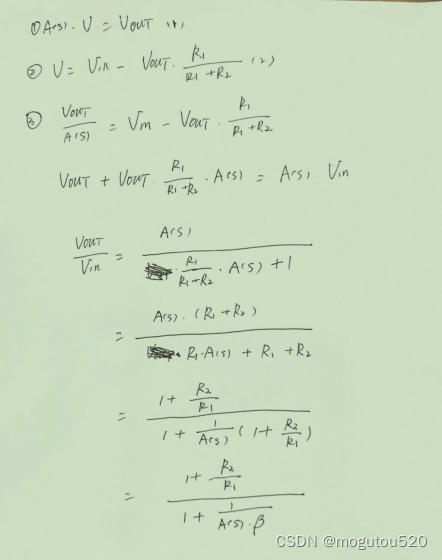 ① A(s) · V = VOUT (1)
② V = Vin - VOUT · R1/(R1+R2) (2)
③ VOUT/A(s) = Vin - VOUT · R1/(R1+R2)
VOUT + VOUT · R1/(R1+R2) · A(s) = A(s) · Vin
VOUT/Vin = A(s) / (· R1/(R1+R2) · A(s) + 1)
= A(s) · (R1+R2) / (R1·A(s) + R1 + R2)
= (1 + R2/R1) / (1 + 1/A(s) (1 + R2/R1))
= (1 + R2/R1) / (1 + 1/(A(s)·β))
CSDN @mogutou520